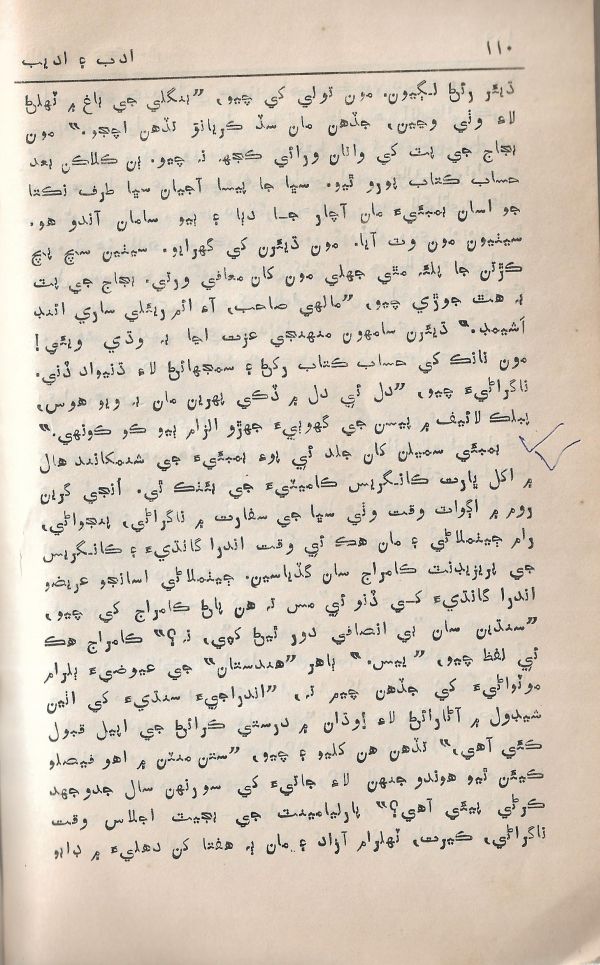 ١١٠
ادب ۽ اديب
ڌيئر رئڻ لڳيون. مون ٽولي کي چيو، ”بنگلي جي باغ ۾ ٽهلڻ
لاءِ وٺي وڃين، جڏهن مان سڏ ڪريانؤ تڏهن اچجو.“ مون
بجاج جي پٽ کي وانان ورائي ڪجهه نہ چيو. ٻن ڪلاڪن بعد
حساب ڪتاب پورو ٿيو. سڀا جا پيسا آجيان سڀا طرف نڪتا
جو اسان بمبئيءَ مان آچار جا دٻا ۽ ٻيو سامان آندو هو.
سڀنيون مون وٽ آيا. مون ڌيئرن کي گهرايو. سڀنين سچ پچ
ڪڙتن جا پلئہ مٿي جهلي مون کان معافي ورتي. بجاج جي پٽ
بہ هٿ جوڙي چيو، ”مالهي صاحب، آءِ ائم ريئلي ساري ائنڊ
اَشيمڊ.“ ڌيئرن سامهون منهنجي عزت اڃا بہ وڌي ويئي!
مون نانڪ کي حساب ڪتاب رکڻ ۽ سمجهائڻ لاءِ ڌنيواد ڏني.
ناگراڻيءَ چيو، ”دل ئي دل ۾ ڏکي پهرين مان بہ ويو هوس،
پبلڪ لائيف ۾ پيسن جي گهوٻيءَ جهڙو الزام ٻيو ڪو ڪونهي.“
بمبئي سميلن کان جلد ئي پوءِ بمبئيءَ جي شنمکانند هال
۾ اکل ڀارت ڪانگريس ڪاميٽيءَ جي بئٺڪ ٿي. اُنجي گرين
روم ۾ اڳوات وقت وٺي سڀا جي سفارت ۾ ناگراڻي، پنجواڻي،
رام جيٺملاڻي ۽ مان هڪ ئي وقت اندرا گانڌيءَ ۽ ڪانگريس
جي پريزيڊنٽ ڪامراج سان گڏياسين. جيٺملاڻي اسانجو عريضو
اندرا گانڌيءَ کي ڏنو ئي مس تہ هن پاڻ ڪامراج کي چيو،
”سنڌين سان بي انصافي دور ٿيڻ کپي، نہ؟“ ڪامراج هڪ
ئي لفظ چيو، ”ييس.“ ٻاهر ”هندستان“ جي عيوضيءَ بلرام
موٽواڻيءَ کي جڏهن چيم تہ، ”اندراجيءَ سنڌيءَ کي اٺين
شيڊول ۾ آڻارائڻ لاءِ اِوڏان ۾ درستي ڪرائڻ جي اپيل قبول
ڪئي آهي،“ تڏهن هن کليو ۽ چيو، ”ستن منٽن ۾ اهو فيصلو
ڪيئن ٿيو هوندو جنهن لاءِ جاٿيءَ کي سورنهن سال جدوجهد
ڪرڻي پيئي آهي؟“ پارلياميںٽ جي بجيٽ اجلاس وقت
ناگراڻي، ڪيرت، ٽهلرام آزاد ۽ مان ٻہ هفتا کن دهليءَ ۾ ڊاٻو